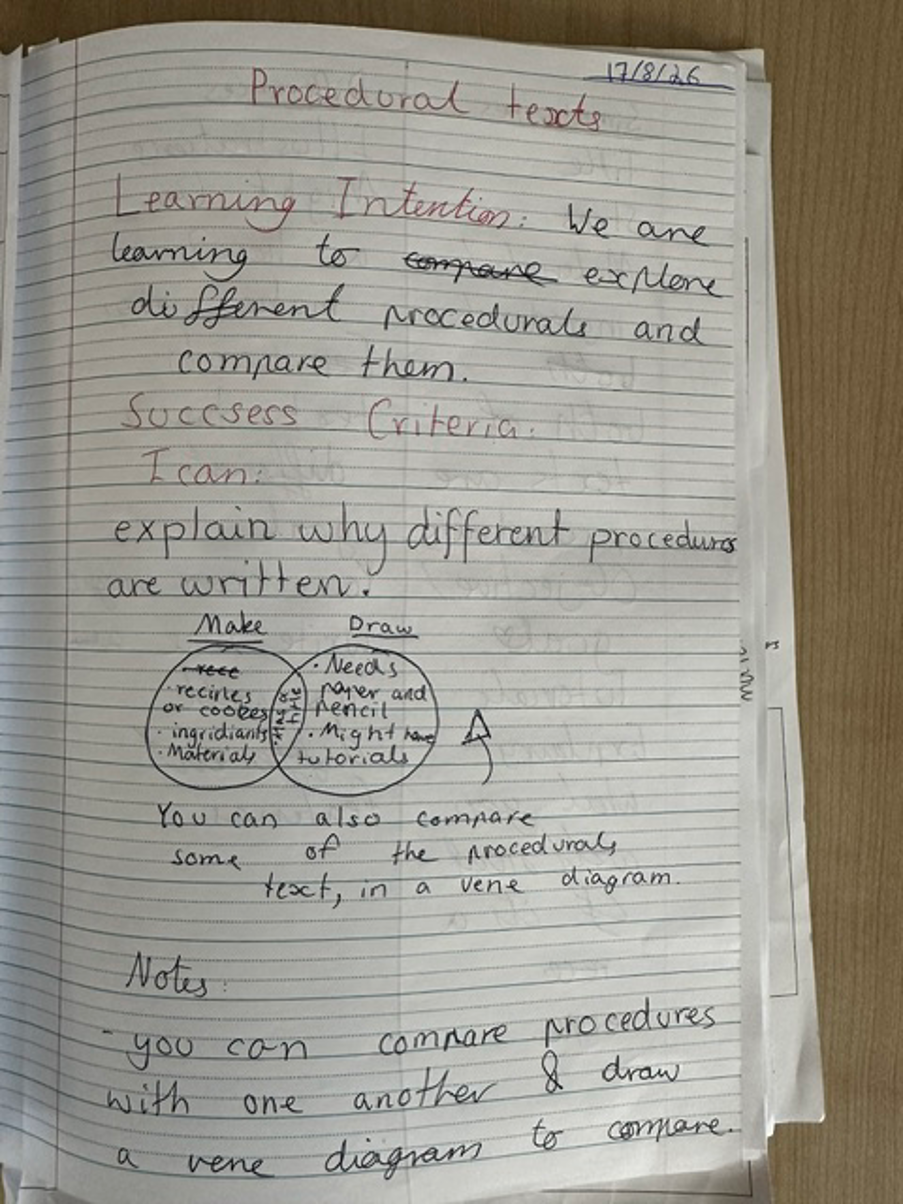 17/8/26
Procedural texts
Learning Intention: We are
learning to compare explore
different procedurals and
compare them.
Succsess Criteria:
I can:
explain why different procedures
are written.
Make
Draw
rece
· recipes
or cookes
· ingridiants
· Materials
· Needs
paper and
pencil
· Might have
tutorials
You can also compare
some of the procedurals
text, in a vene diagram.
Notes:
- you can compare procedures
with one another & draw
a vene diagram to compare.